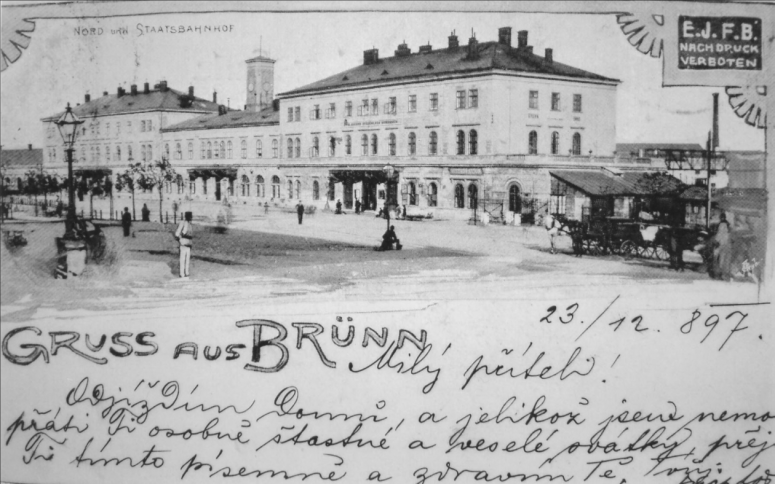 NORD UND STAATSBAHNHOF
E.J.F.B.
NACHDRUCK
VERBOTEN
GRUSS AUS BRÜNN
23./12. 897.
Milý příteli!
Odjíždím Domů, a jelikož jsem nemo
přáti Ti osobně šťastné a veselé svátky, přej
Ti tímto písemně a zdravím Tě, Tvůj